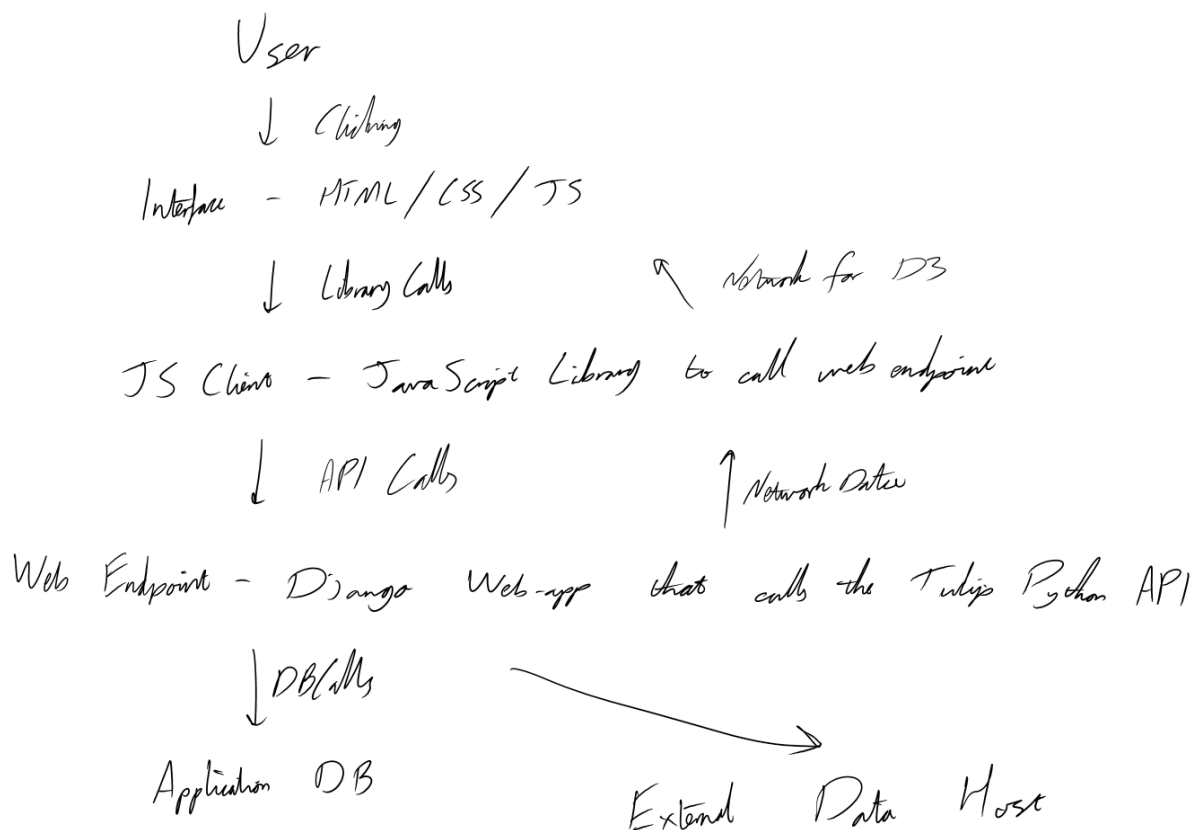 User
Clicking
Interface - HTML/CSS/JS
Library Calls
Network for D3
JS Client - JavaScript Library to call web endpoint
API Calls
Network Data
Web Endpoint - Django Web-app that calls the Tulip Python API
DB Calls
Application DB
External Data Host